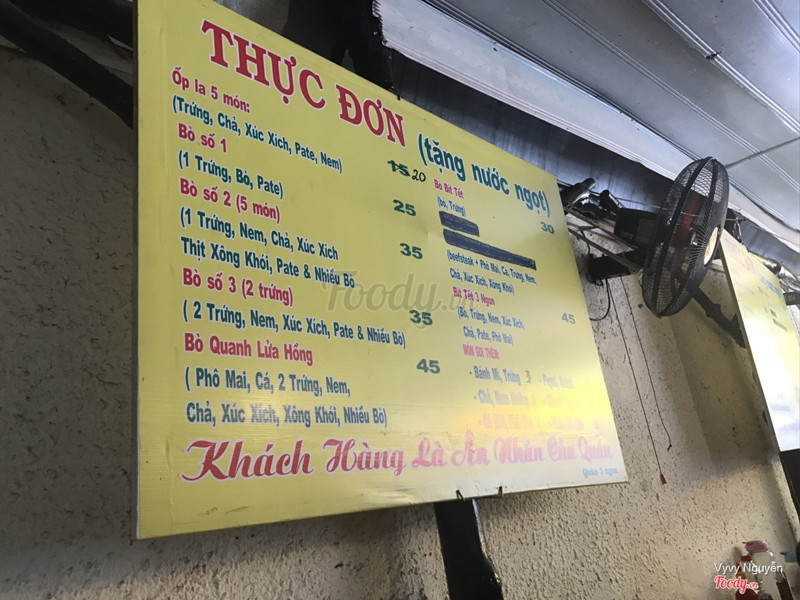 THỰC ĐƠN (tặng nước ngọt)
Ốp la 5 món:
(Trứng, Chả, Xúc Xích, Pate, Nem) 15 20
Bò số 1
(1 Trứng, Bò, Pate) 25
Bò số 2 (5 món)
(1 Trứng, Nem, Chả, Xúc Xích 35
Thịt Xông Khói, Pate & Nhiều Bò
Bò số 3 (2 trứng)
( 2 Trứng, Nem, Xúc Xích, Pate & Nhiều Bò) 35
Bò Quanh Lửa Hồng 45
( Phô Mai, Cá, 2 Trứng, Nem,
Chả, Xúc Xích, Xông Khói, Nhiều Bò)
Bò Bít Tết
(bò, Trứng) 30
(beefsteak + Phô Mai, Cá, Trứng, Nem,
Chả, Xúc Xích, Xông Khói)
Bít Tết 3 Ngon
(Bò, Trứng, Nem, Xúc Xích, 45
Chả, Pate, Phô Mai)
MÓN GỌI THÊM:
- Bánh Mì, Trứng 3
- Chả,
Khách Hàng Là Ân Nhân Của Quán
Foody.vn
Vyvy Nguyễn
Foody.vn